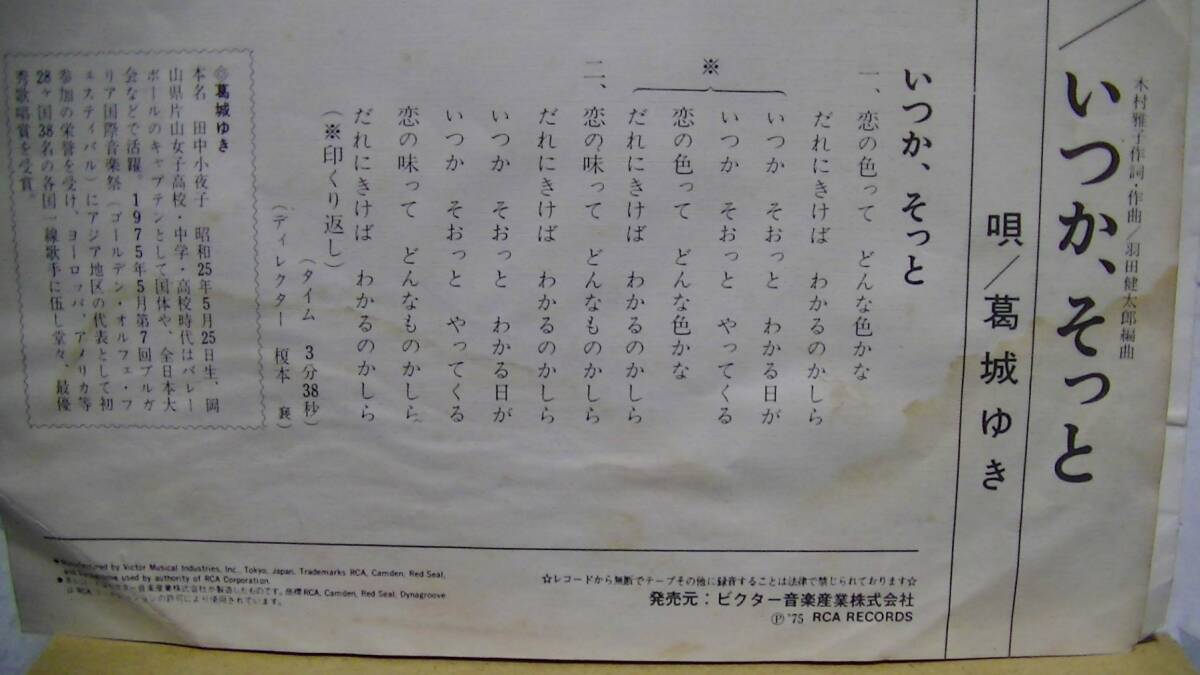 木村雅子作詞・作曲/羽田健太郎編曲
いつか、そっと
唄/葛城ゆき
いつか、そっと
一、恋の色って どんな色かな
だれにきけば わかるのかしら
※
いつか そおっと わかる日が
いつか そおっと やってくる
恋の色って どんな色かな
だれにきけば わかるのかしら
二、恋の味って どんなものかしら
だれにきけば わかるのかしら
いつか そおっと わかる日が
いつか そおっと やってくる
恋の味って どんなものかしら
だれにきけば わかるのかしら
(※印くり返し)
(タイム 3分38秒)
(ディレクター 榎本 襄)
◎葛城ゆき
本名 田中小夜子 昭和25年5月25日生、岡
山県片山女子高校・中学・高校時代はバレー
ボールのキャプテンとして国体や、全日本大
会などで活躍。1975年5月第7回ブルガ
リア国際音楽祭(ゴールデン・オルフェ・フ
ェスティバル)にアジア地区の代表として初
参加の栄誉を受け、ヨーロッパ、アメリカ等
28ヶ国38名の各国一線歌手に伍し堂々、最優
秀歌唱賞を受賞。
●Manufactured by Victor Musical Industries, Inc., Tokyo, Japan. Trademarks RCA, Camden, Red Seal,
and Dynagroove used by authority of RCA Corporation.
●本レコードはビクター音楽産業株式会社が製造したものです。商標RCA, Camden, Red Seal, Dynagroove
は RCA コーポレーションの許可により使用されています。
☆レコードから無断でテープその他に録音することは法律で禁じられております☆
発売元:ビクター音楽産業株式会社
Ⓟ'75 RCA RECORDS